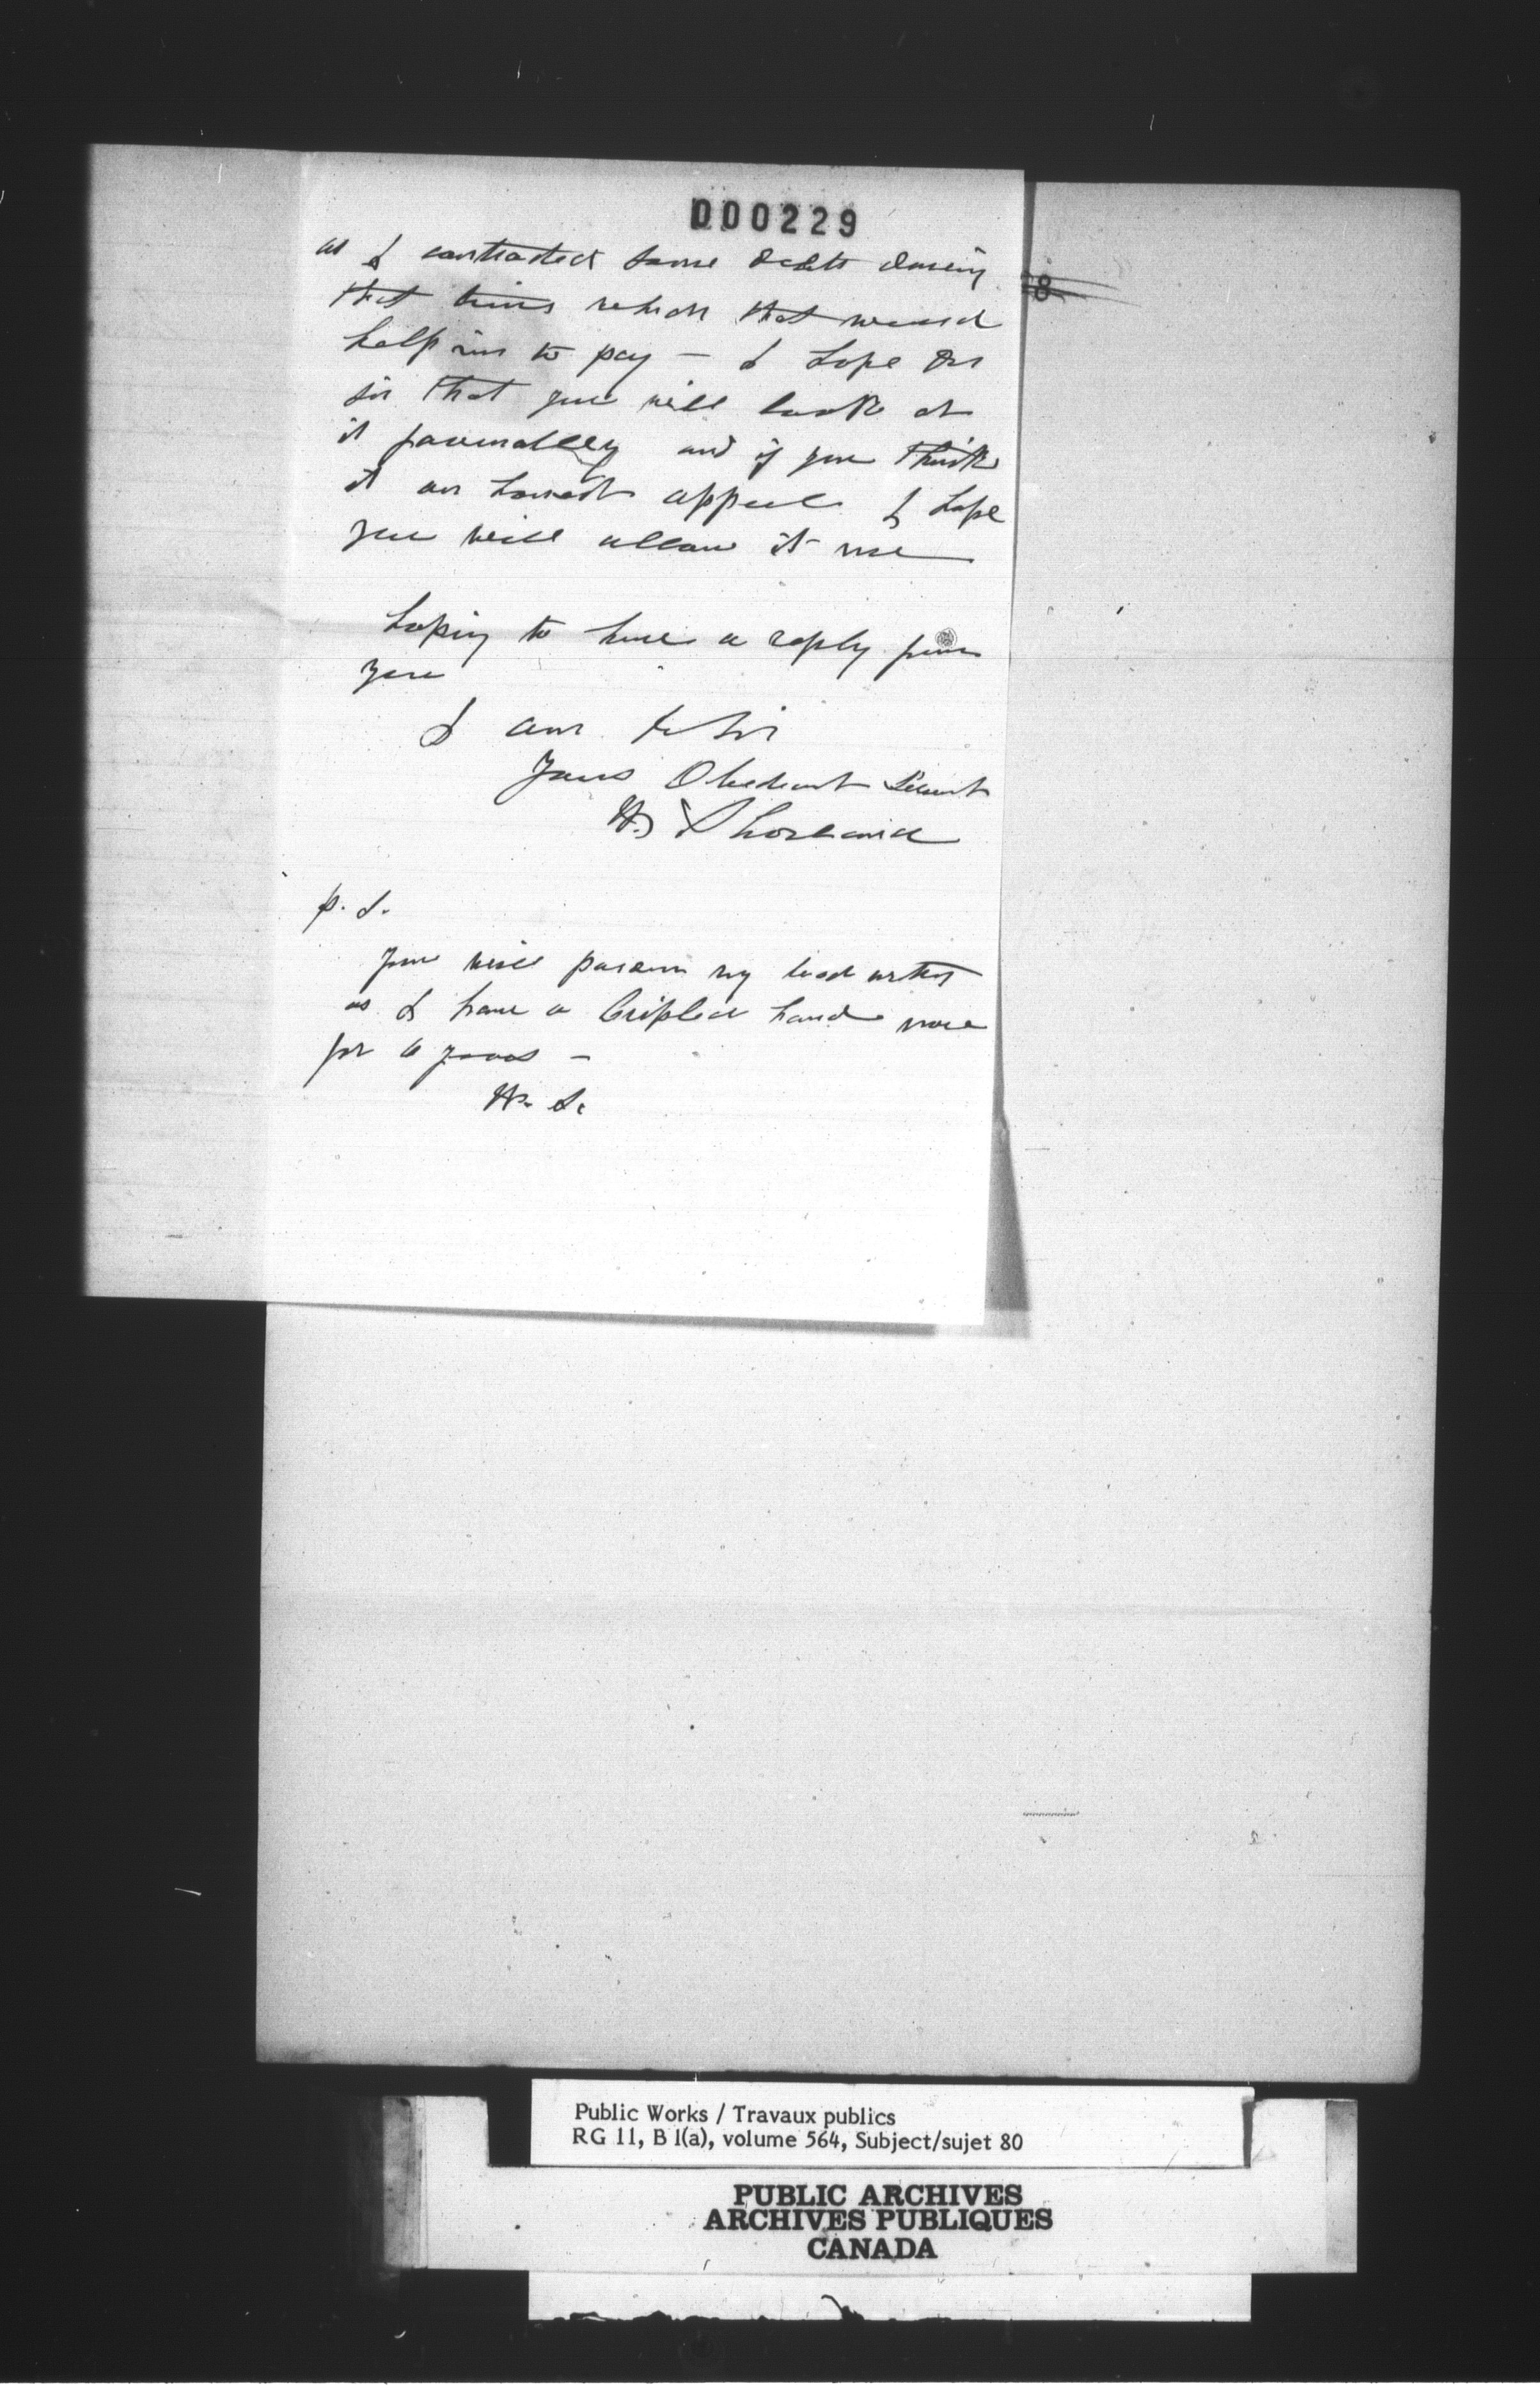 000229
as I contracted some debts during
that time which that would
help me to pay — I hope Dr
sir that you will look at
it favourabley and if you think
it an honest appeal I hope
you will allow it me
hoping to have a reply from
you
I am Sir
Yours Obedient Servent
W.
p. S.
you will pardon my bad
as I have a Cripled hand now
for 6 years —
W. S.
8
Public Works / Travaux publics
RG 11, B 1(a), volume 564, Subject/sujet 80
PUBLIC ARCHIVES
ARCHIVES PUBLIQUES
CANADA